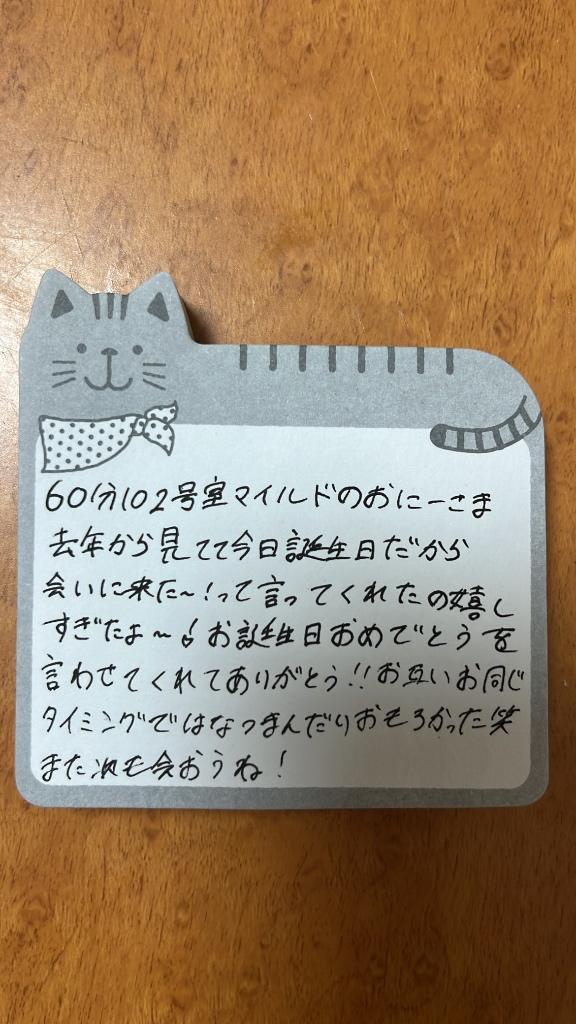 60分102号室マイルドのおにーさま
去年から見てて今日誕生日だから
会いに来た～！って言ってくれたの嬉し
すぎたよ～！お誕生日おめでとうを
言わせてくれてありがとう!!お互いお同じ
タイミングではなつまんだりおもろかった笑
また次も会おうね！